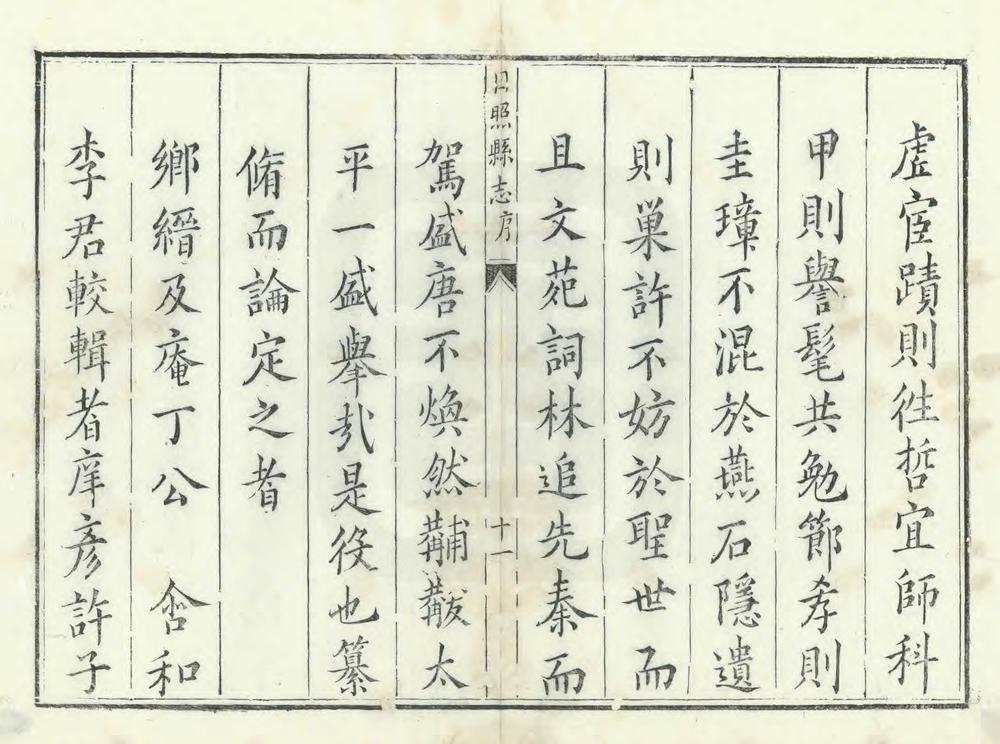 虛宦蹟則徃哲宜師科
甲則譽髦共勉節孝則
圭璋不混於燕石隱遺
則巢許不妨於聖世而
且文苑詞林追先秦而
日照縣志序
十一
駕盛唐不煥然黼黻太
平一盛舉㢤是役也纂
脩而論定之者
鄉縉及庵丁公 含和
李君較輯者庠彥許子